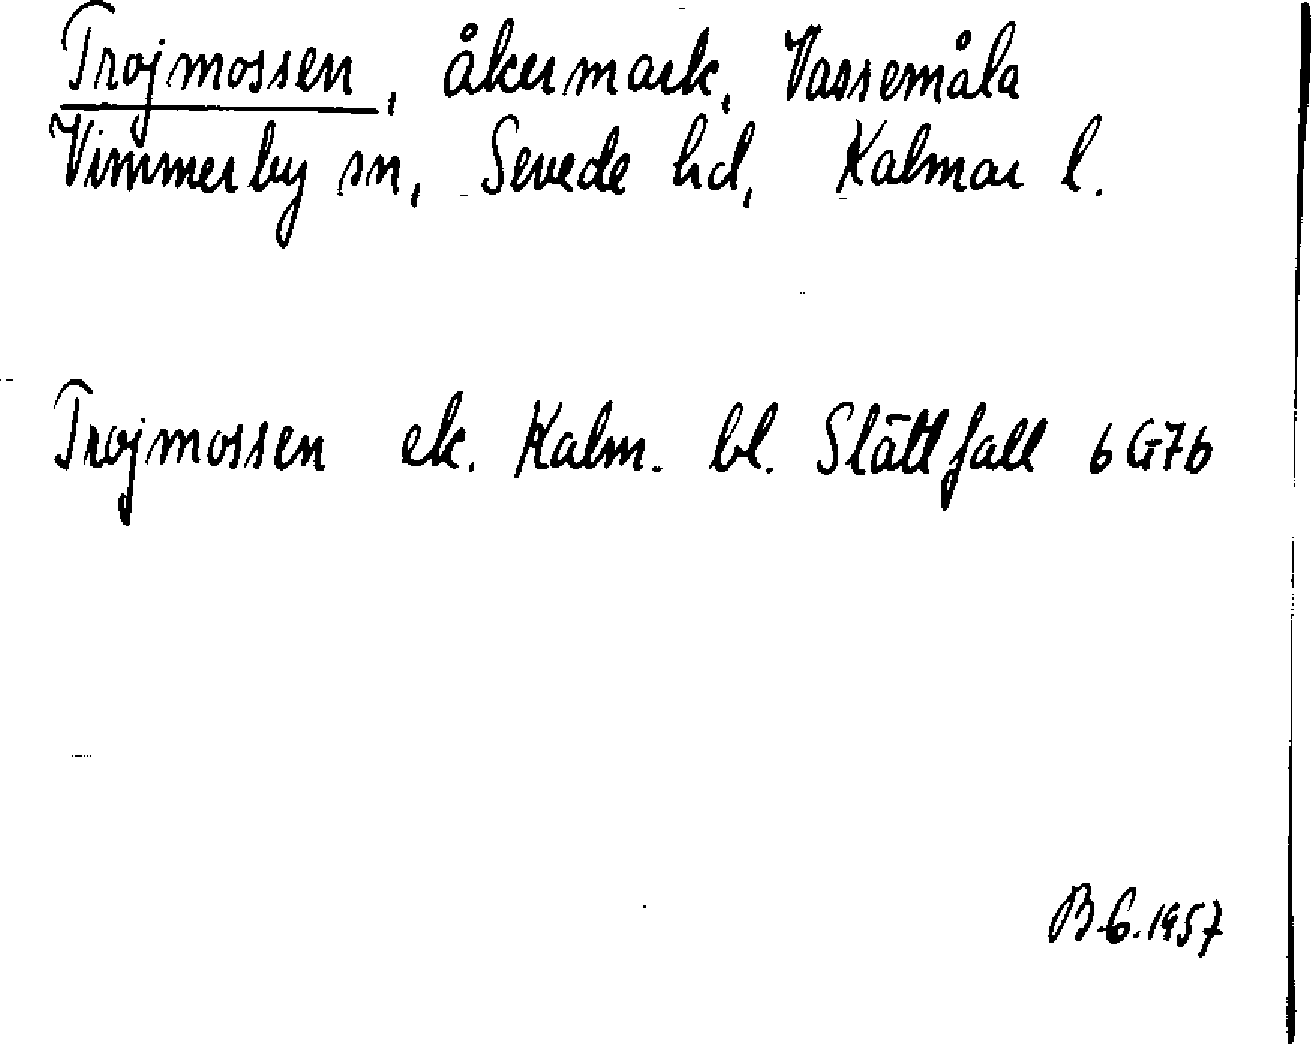 Trojmossen, åkermark, Vassemåla
Vimmerby sn, Sevede hd, Kalmar l.
Trojmossen ek. Kalm. bl. Slättfall 6G7b
B.G. 1957